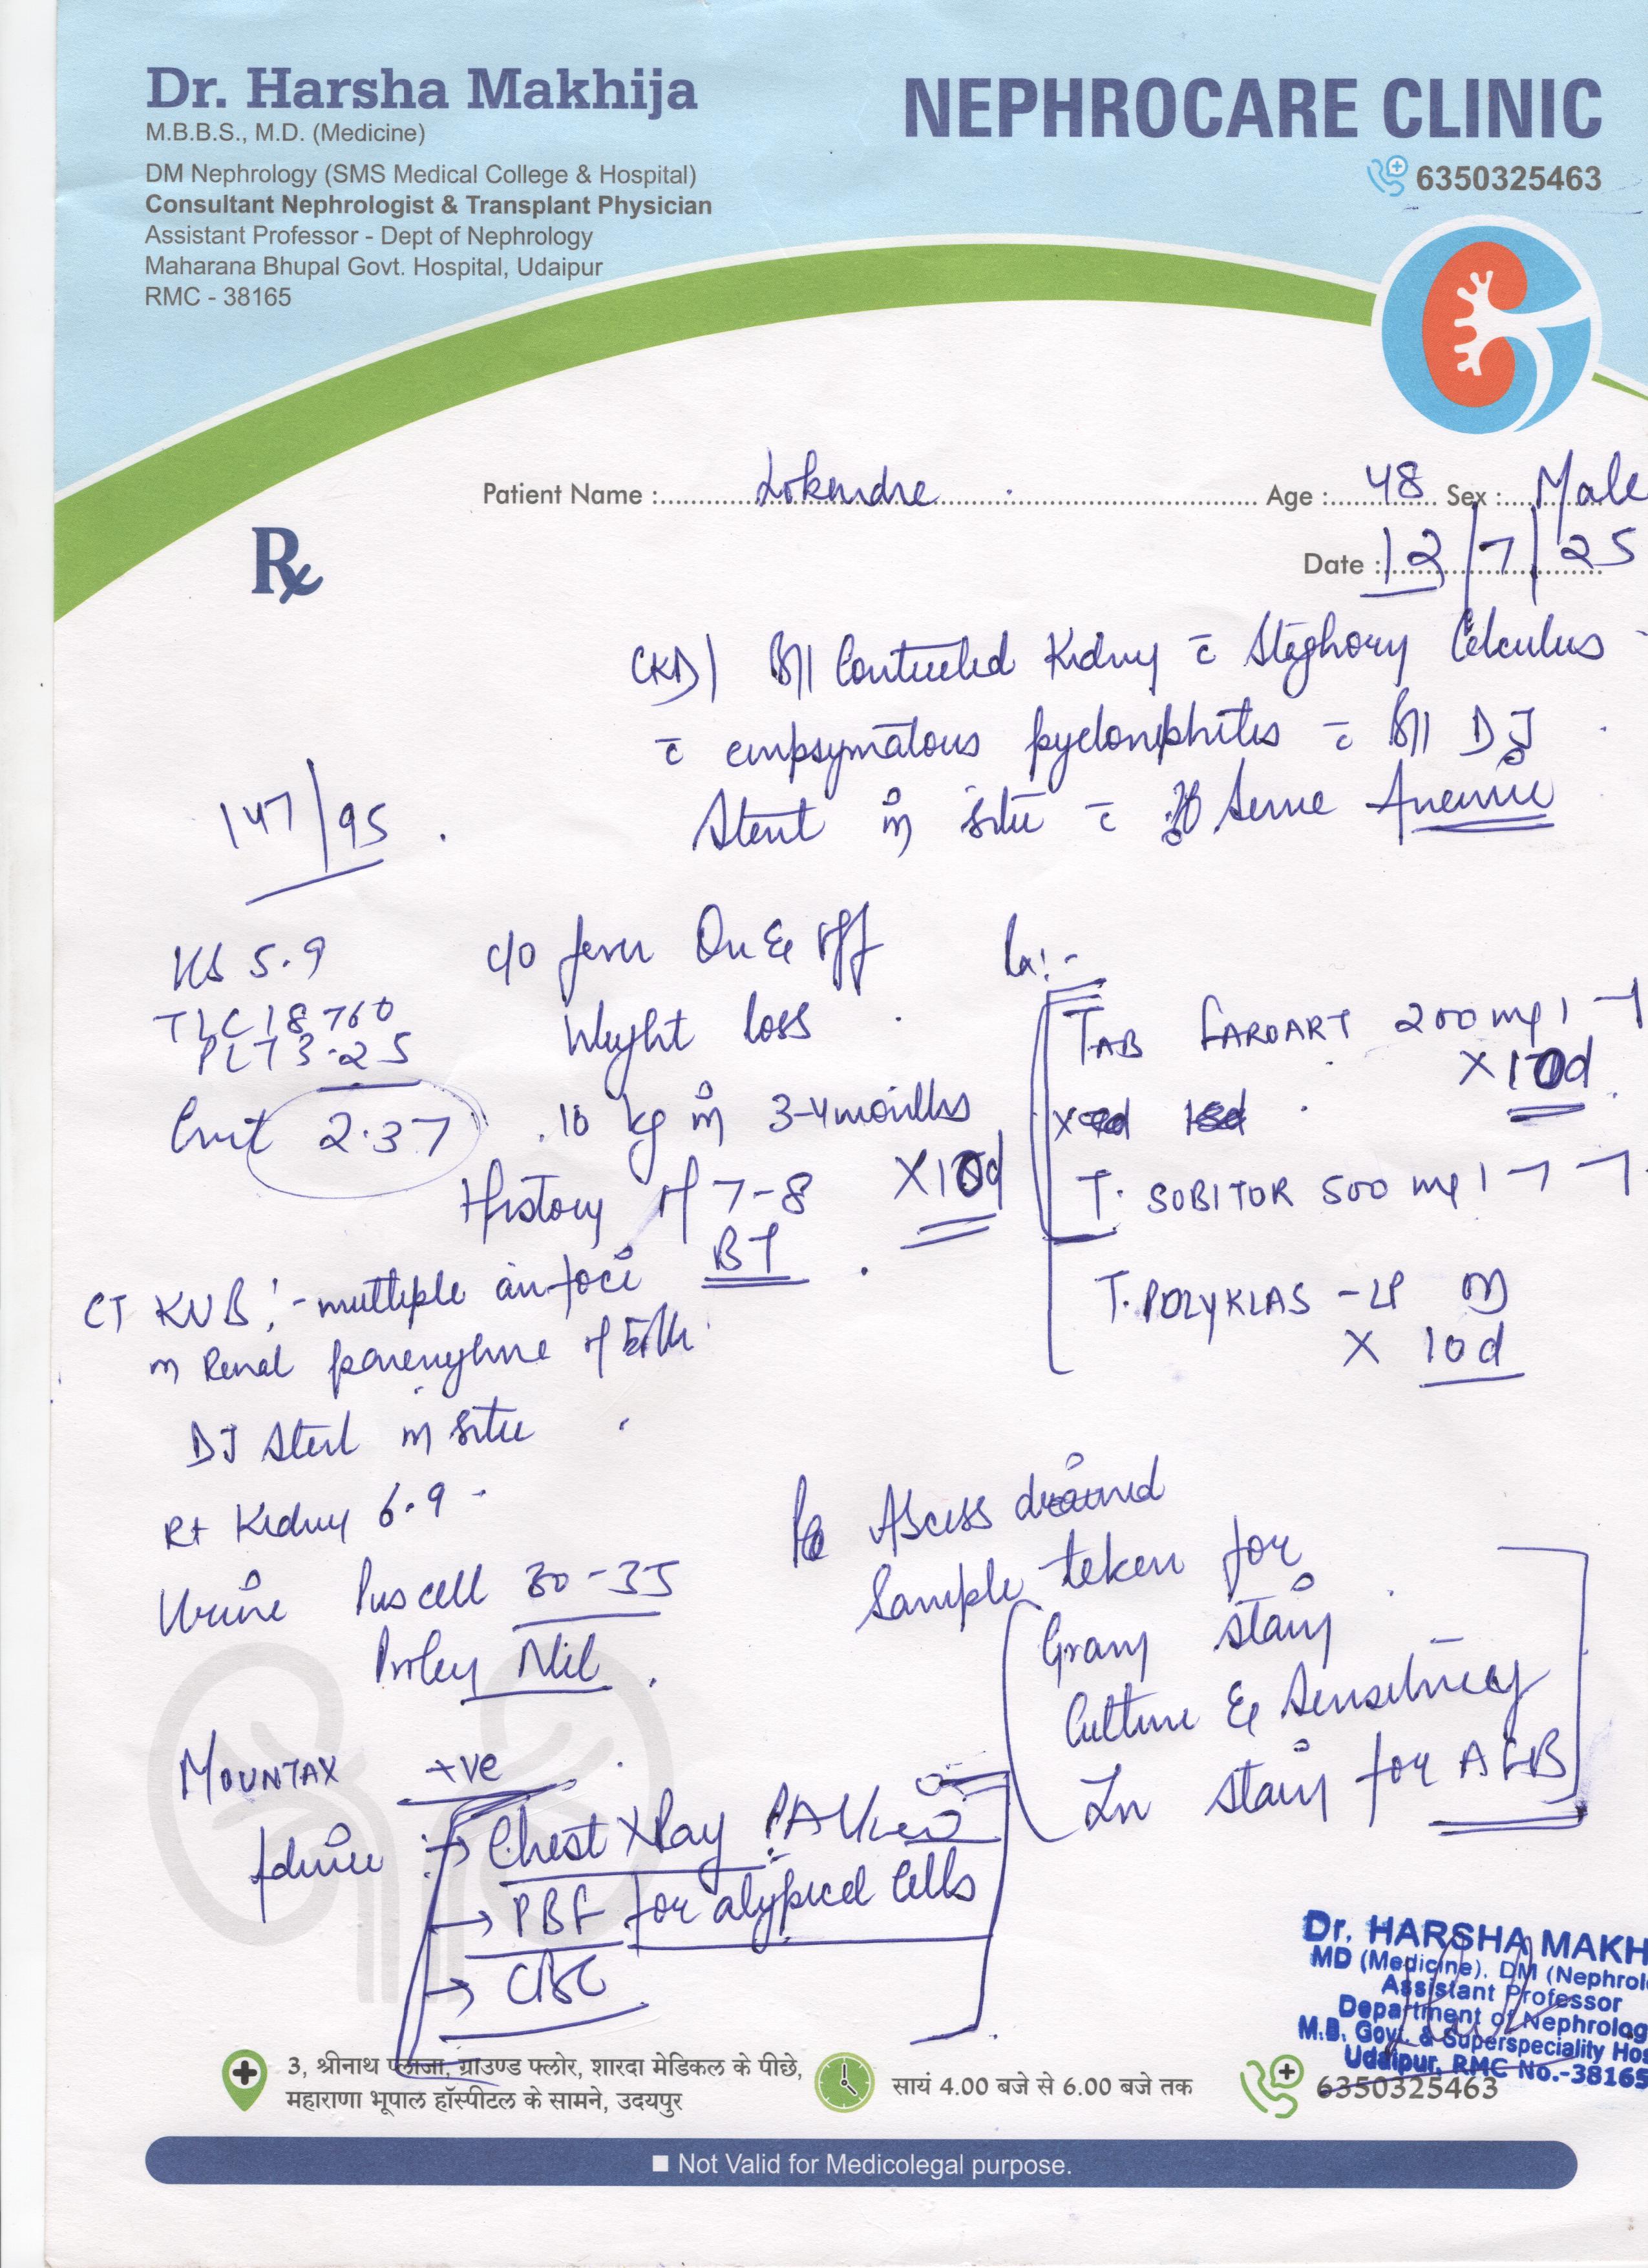 Dr. Harsha Makhija
M.B.B.S., M.D. (Medicine)
DM Nephrology (SMS Medical College & Hospital)
Consultant Nephrologist & Transplant Physician
Assistant Professor - Dept of Nephrology
Maharana Bhupal Govt. Hospital, Udaipur
RMC - 38165
NEPHROCARE CLINIC
6350325463
Patient Name : Lokendre Age : 48 Sex : Male
Date : 12/7/25
Rx
CKD | B/l Contracted Kidney c̄ Staghorn Calculus
c̄ empsymatous pyelonephritis c̄ B/l DJ
Stent in situ c̄ Severe Anemia
147/95
5.9
TLC 18760
PLT 3.25
Creat 2.37
c/o fever On & off
Weight loss
10 kg in 3-4 months
History of 7-8
BT
TAB FAROART 200 mg 1-1
X 10d
T. SOBITOR 500 mg 1-1-1
X 10d
T. POLYKLAS - LP OD
X 10d
CT KUB :- multiple air foci
in Renal parenchyma of
DJ Stent in situ
Rt Kidney 6.9
Urine Pus cell 30-35
Protein Nil
MOUNTAX +ve
Abscess drained
Sample taken for
Gram stain
Culture & Sensitivity
Zn stain for AFB
Advice :→ Chest X Ray PA View
→ PBF for atypical Cells
→ CBC
Dr. HARSHA MAKH
MD (Medicine), DM (Nephrol
Assistant Professor
Department of Nephrolog
M.B. Govt. & Superspeciality Hos
Udaipur, RMC No.-38165
3, श्रीनाथ प्लाजा, ग्राउण्ड फ्लोर, शारदा मेडिकल के पीछे,
महाराणा भूपाल हॉस्पीटल के सामने, उदयपुर
सायं 4.00 बजे से 6.00 बजे तक
6350325463
Not Valid for Medicolegal purpose.